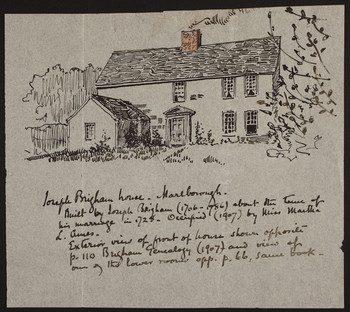 Joseph Brigham house - Marlborough -
Built by Joseph Brigham (1706-) about the time of
his marriage in 1728 - Occupied (1907) by Miss Martha
L. Ames -
Exterior view of front of house shown opposite
p. 110 Brigham Genealogy (1907) and view of
one of the lower rooms opp. p. 66, same book -